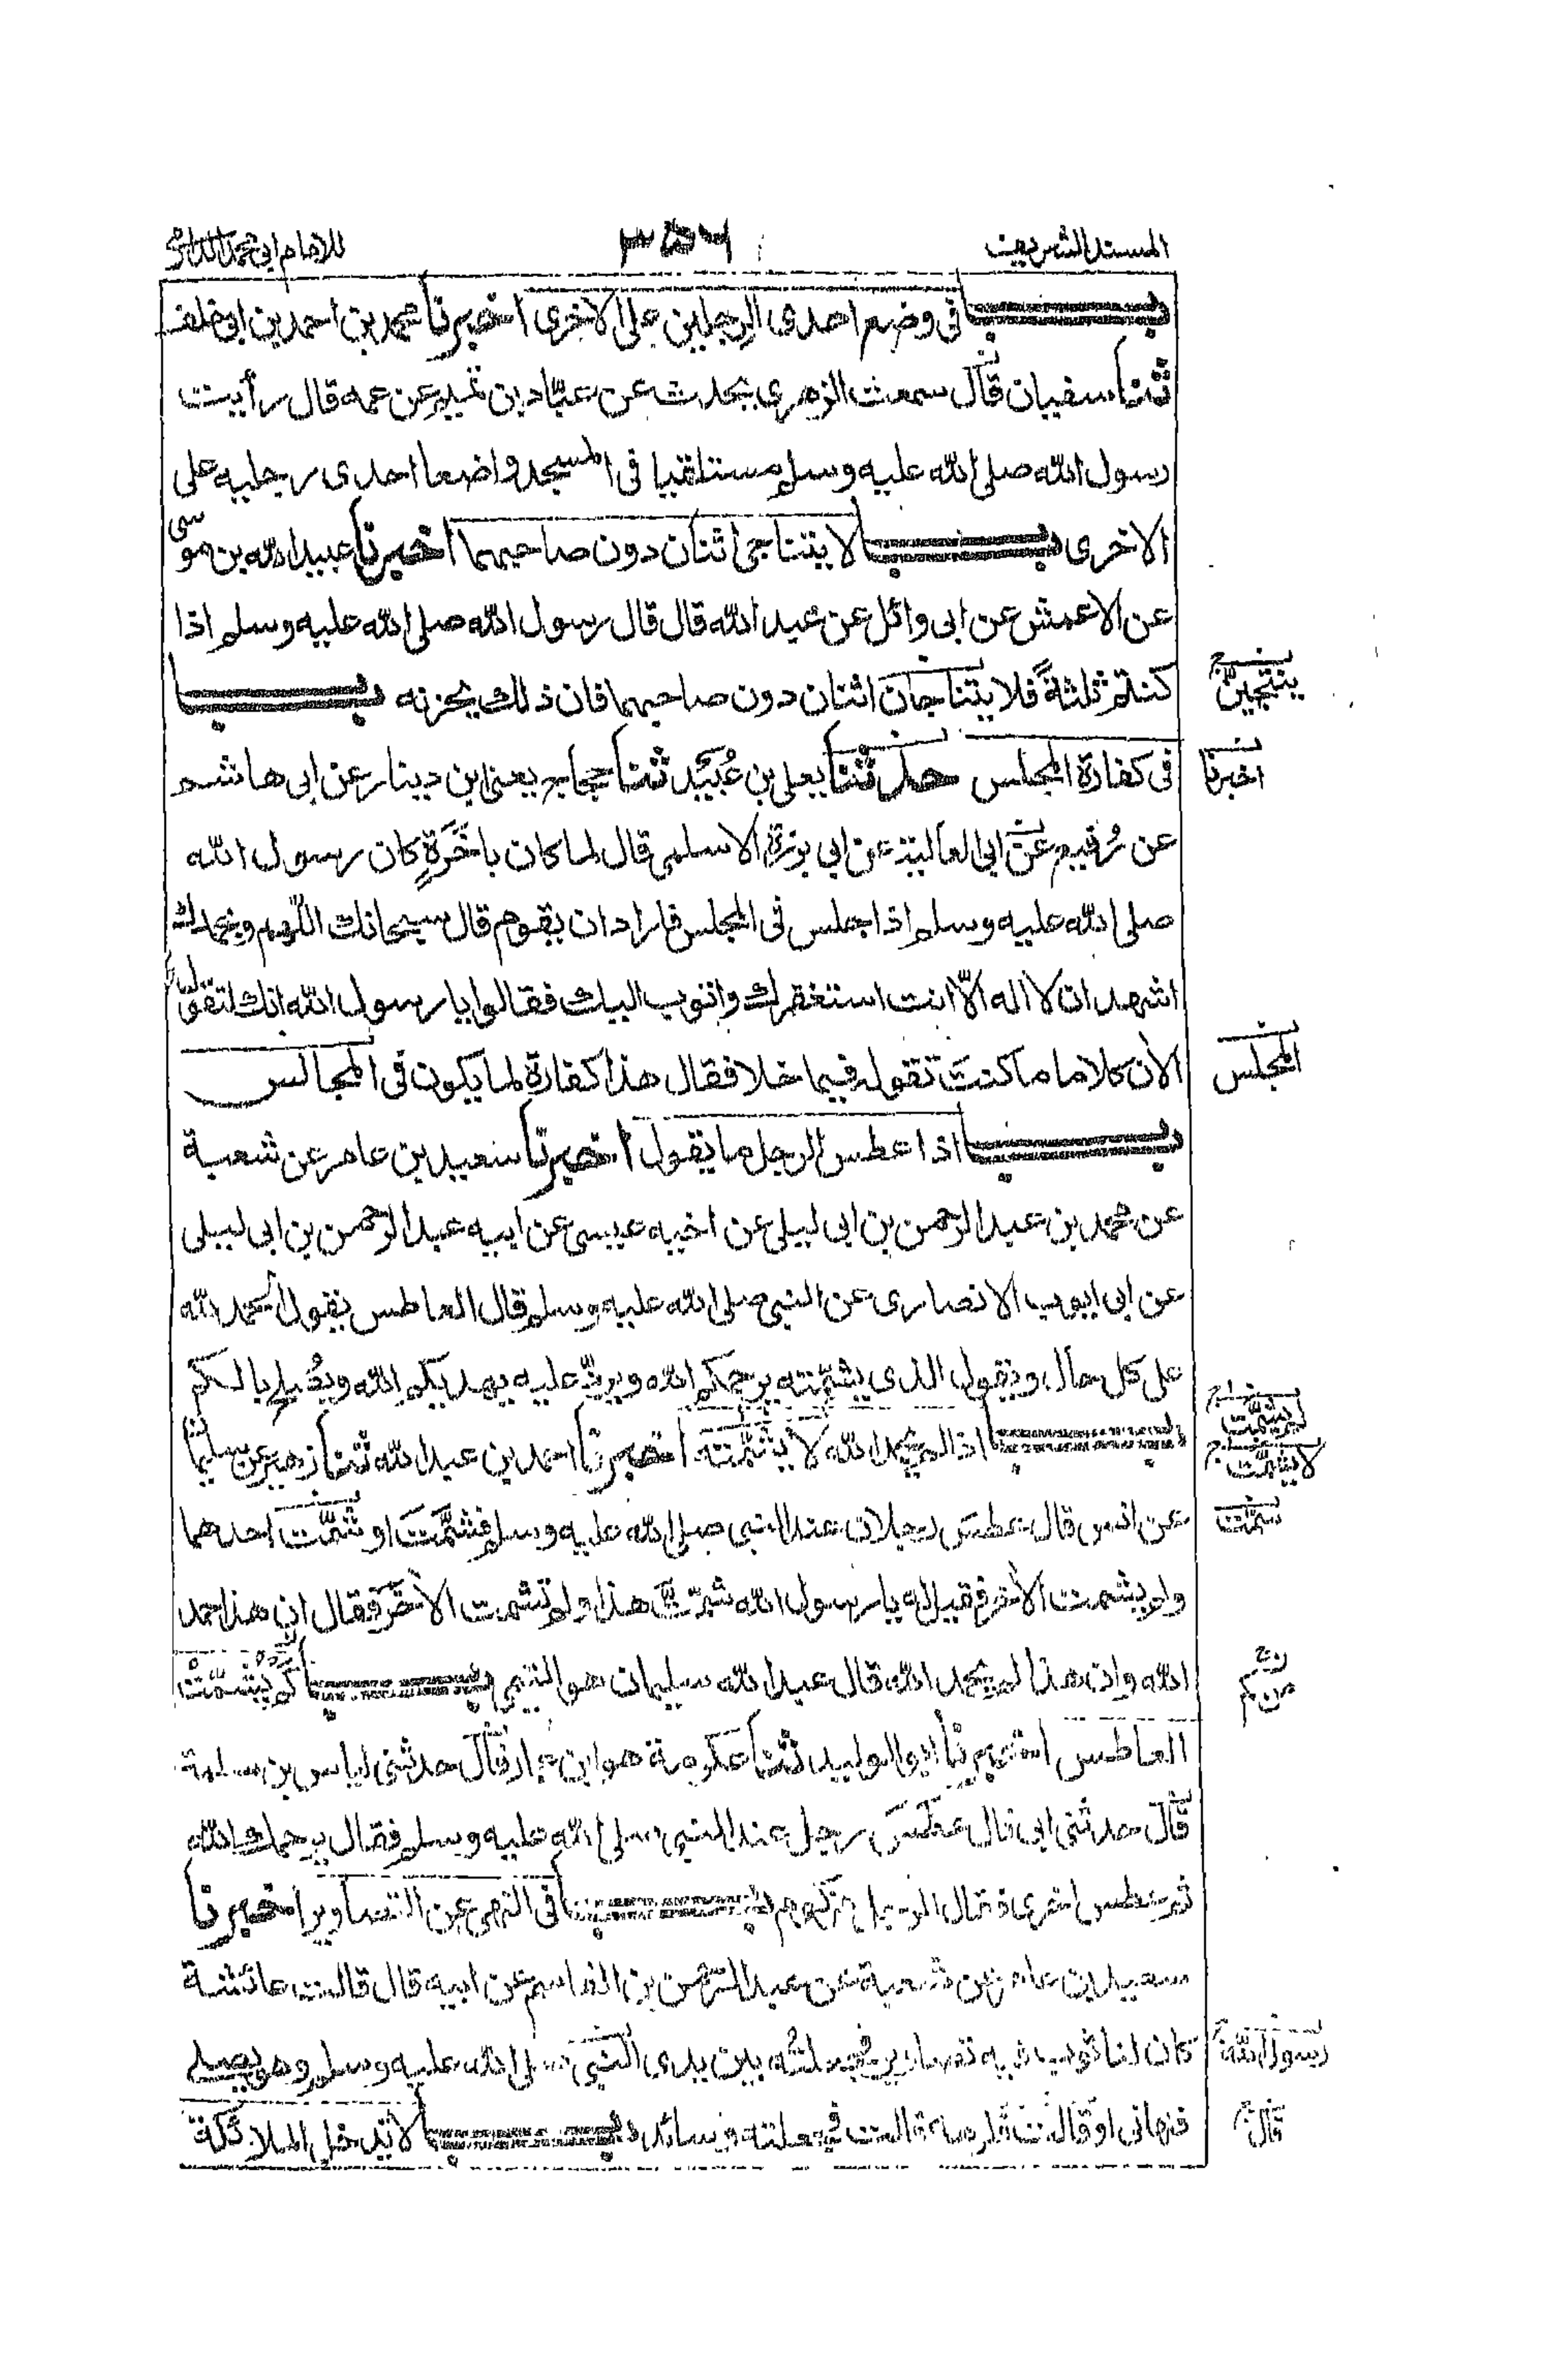 المسند الشريف ٣٥٦ للامام ابي محمد الدارمي
باب في وضع احدى الرجلين على الاخرى اخبرنا محمد بن احمد بن ابي خلف
ثنا سفيان قال سمعت الزهري يحدث عن عبّاد بن تميم عن عمه قال رأيت
رسول الله صلى الله عليه وسلم مستلقيا في المسجد واضعا احدى رجليه على
الاخرى باب لا يتناجى اثنان دون صاحبهما اخبرنا عبيد الله بن موسى
عن الاعمش عن ابي وائل عن عبد الله قال قال رسول الله صلى الله عليه وسلم اذا
كنتم ثلثةً فلا يتناجان اثنان دون صاحبهما فان ذلك يحزنه باب
في كفارة المجلس حدثنا يعلى بن عُبَيد ثنا حجاج يعنى ابن دينار عن ابي هاشم
اخبرنا
عن رُفيع عن ابي العالية عن ابي برزة الاسلمي قال لما كان باَخَرَةٍ كان رسول الله
صلى الله عليه وسلم اذا جلس في المجلس فاراد ان يقوم قال سبحانك اللّهم وبحمدك
اشهد ان لا اله الّا انت استغفرك واتوب اليك فقالوا يا رسول الله انك لتقول
الأن كلاما ما كنتَ تقوله فيما خلا فقال هذا كفارة لما يكون في المجالس
المجلس
باب اذا عطس الرجل ما يقول اخبرنا سعيد بن عامر عن شعبة
عن محمد بن عبد الرحمن بن ابي ليلى عن اخيه عيسى عن ابيه عبد الرحمن بن ابي ليلى
عن ابي ايوب الانصاري عن النبي صلى الله عليه وسلم قال العاطس يقول الحمد لله
على كل حال ويقول الذي يشمّته يرحمكم الله ويردّ عليه يهديكم الله ويُصلح بالكم
باب اذا لم يحمد الله لا يشمّته اخبرنا احمد بن عبد الله ثنا زهير عن سليمان
لا يشمّت
عن انس قال عطس رجلان عند النبي صلى الله عليه وسلم فشمَّتَ او شمَّتَ احدهما
ولم يشمت الأخر فقيل له يا رسول الله شمّتَّ هذا ولم تشمت الأخَر فقال ان هذا حمد
الله وان هذا لم يحمد الله قال عبد الله سليمان هو التيمي باب كم يشمّت
العاطس اخبرنا ابو الوليد ثنا عكرمة هو ابن عمار قال حدثني اياس بن سلمة
قال حدثني ابي قال عطسَ رجل عند النبي صلى الله عليه وسلم فقال يرحمك الله
ثم عطس اخرى فقال الرجل مزكوم باب في النهي عن التصاوير اخبرنا
سعيد بن عامر عن شعبة عن عبد الرحمن بن القاسم عن ابيه قال قالت عائشة
كان لنا ثوب فيه تصاوير فجعلتُه بين يدي النبي صلى الله عليه وسلم وهو يصلي
رسول الله
فنهاني او قالت فكرهه قالت فجعلته وسائد باب لا تدخل الملائكة
قال